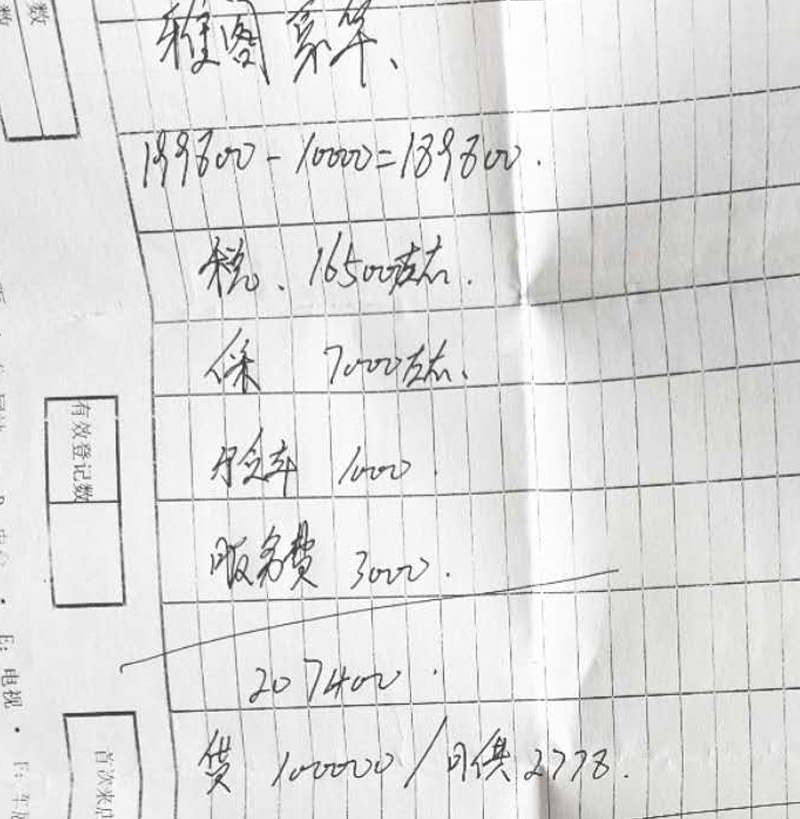 雅阁 豪华、
199800 - 10000 = 189800.
税、16500左右.
保 7000左右、
验车 1000.
服务费 3000.
207400.
贷 100000 / 月供 2778.
数
数
有效登记数
E: 电视
首次来